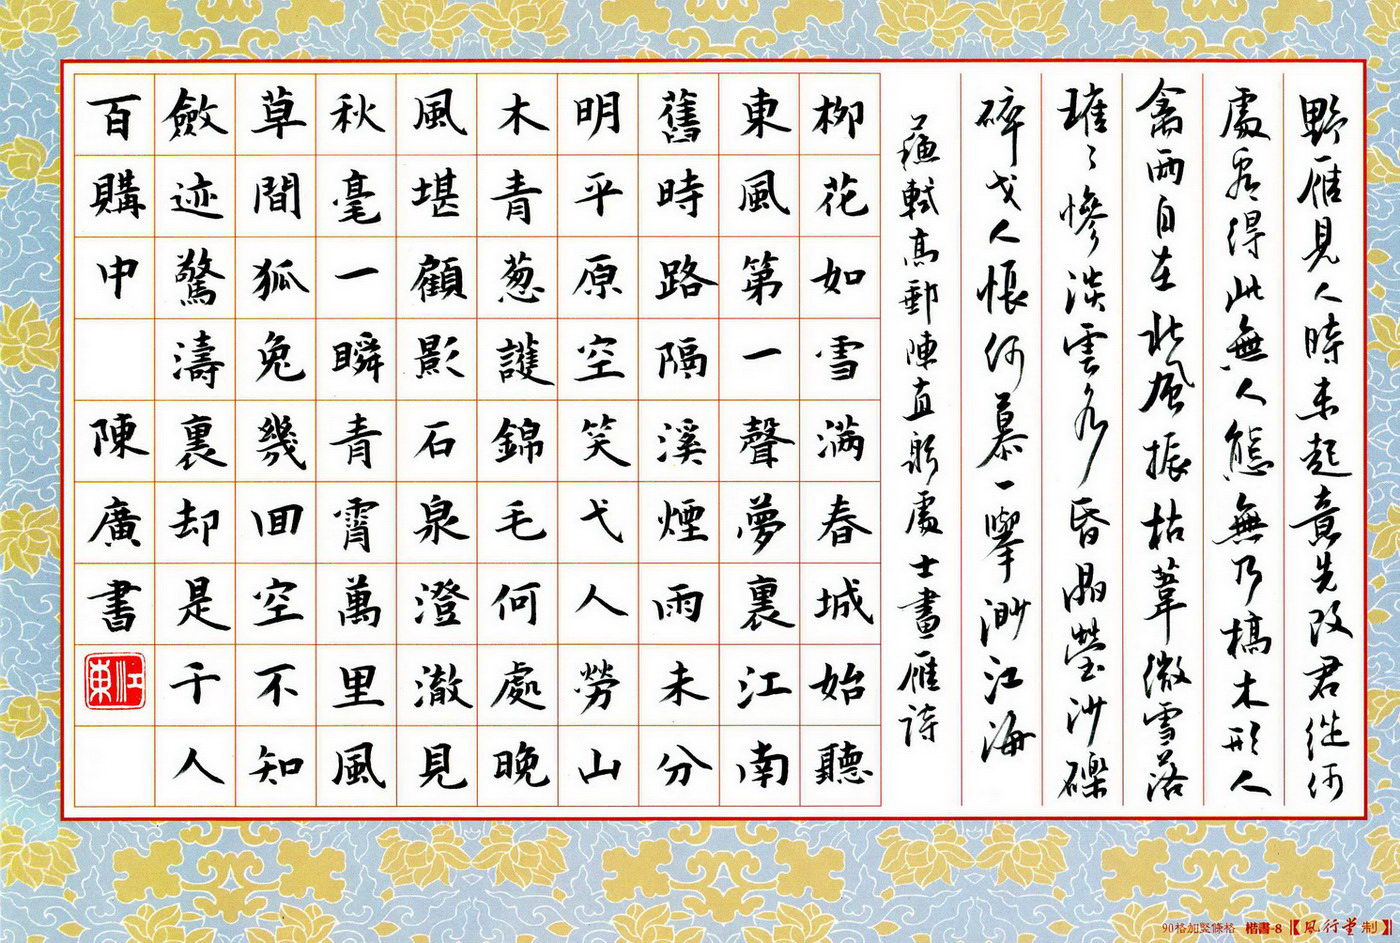 野雁見人時未起意先改君從何
處看得此無人態無乃槁木形人
禽兩自在北風振枯葦微雪落
璀〻慘淡雲水昏晶熒沙礫
碎弋人悵何慕一舉渺江海
蘇軾高郵陳直躬處士畫雁詩
柳花如雪滿春城始聽
東風第一聲夢裏江南
舊時路隔溪煙雨未分
明平原空笑弋人勞山
木青葱護錦毛何處晚
風堪顧影石泉澄澈見
秋毫一瞬青霄萬里風
草間狐兔幾回空不知
斂迹驚濤裏却是千人
百購中 陳廣書
江東
90格加竪條格 楷書-8【風行堂制】